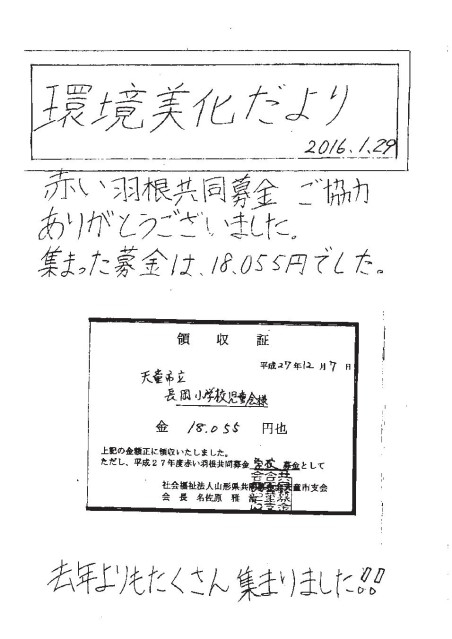 環境美化だより
2016.1.29
赤い羽根共同募金 ご協力
ありがとうございました。
集まった募金は、18.055円でした。
領収証
平成27年12月7日
天童市立
長岡小学校児童会様
金 18.055 円也
上記の金額正に領収いたしました。
ただし、平成27年度赤い羽根共同募金 学校 募金として
社会福祉法人山形県共同募金会天童市支会
会長 名佐原
去年よりもたくさん集まりました!!